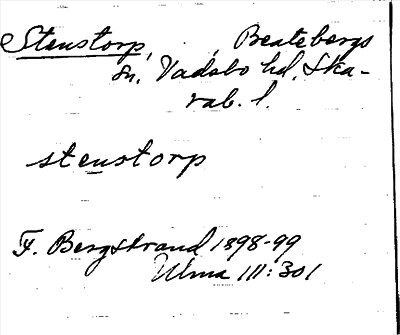 Stenstorp, , Beatebergs
sn, Vadsbo hd, Ska-
rab. l.
stenstorp
F. Bergstrand 1898-99
Ulma 111: 301